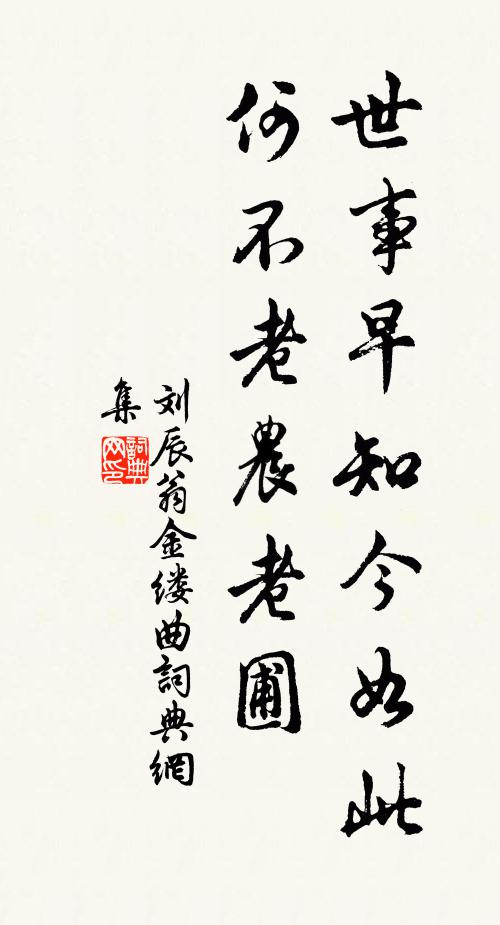 世事早知今如此
何不老農老圃
刘辰翁金缕曲詞典網
集
詞典
网印